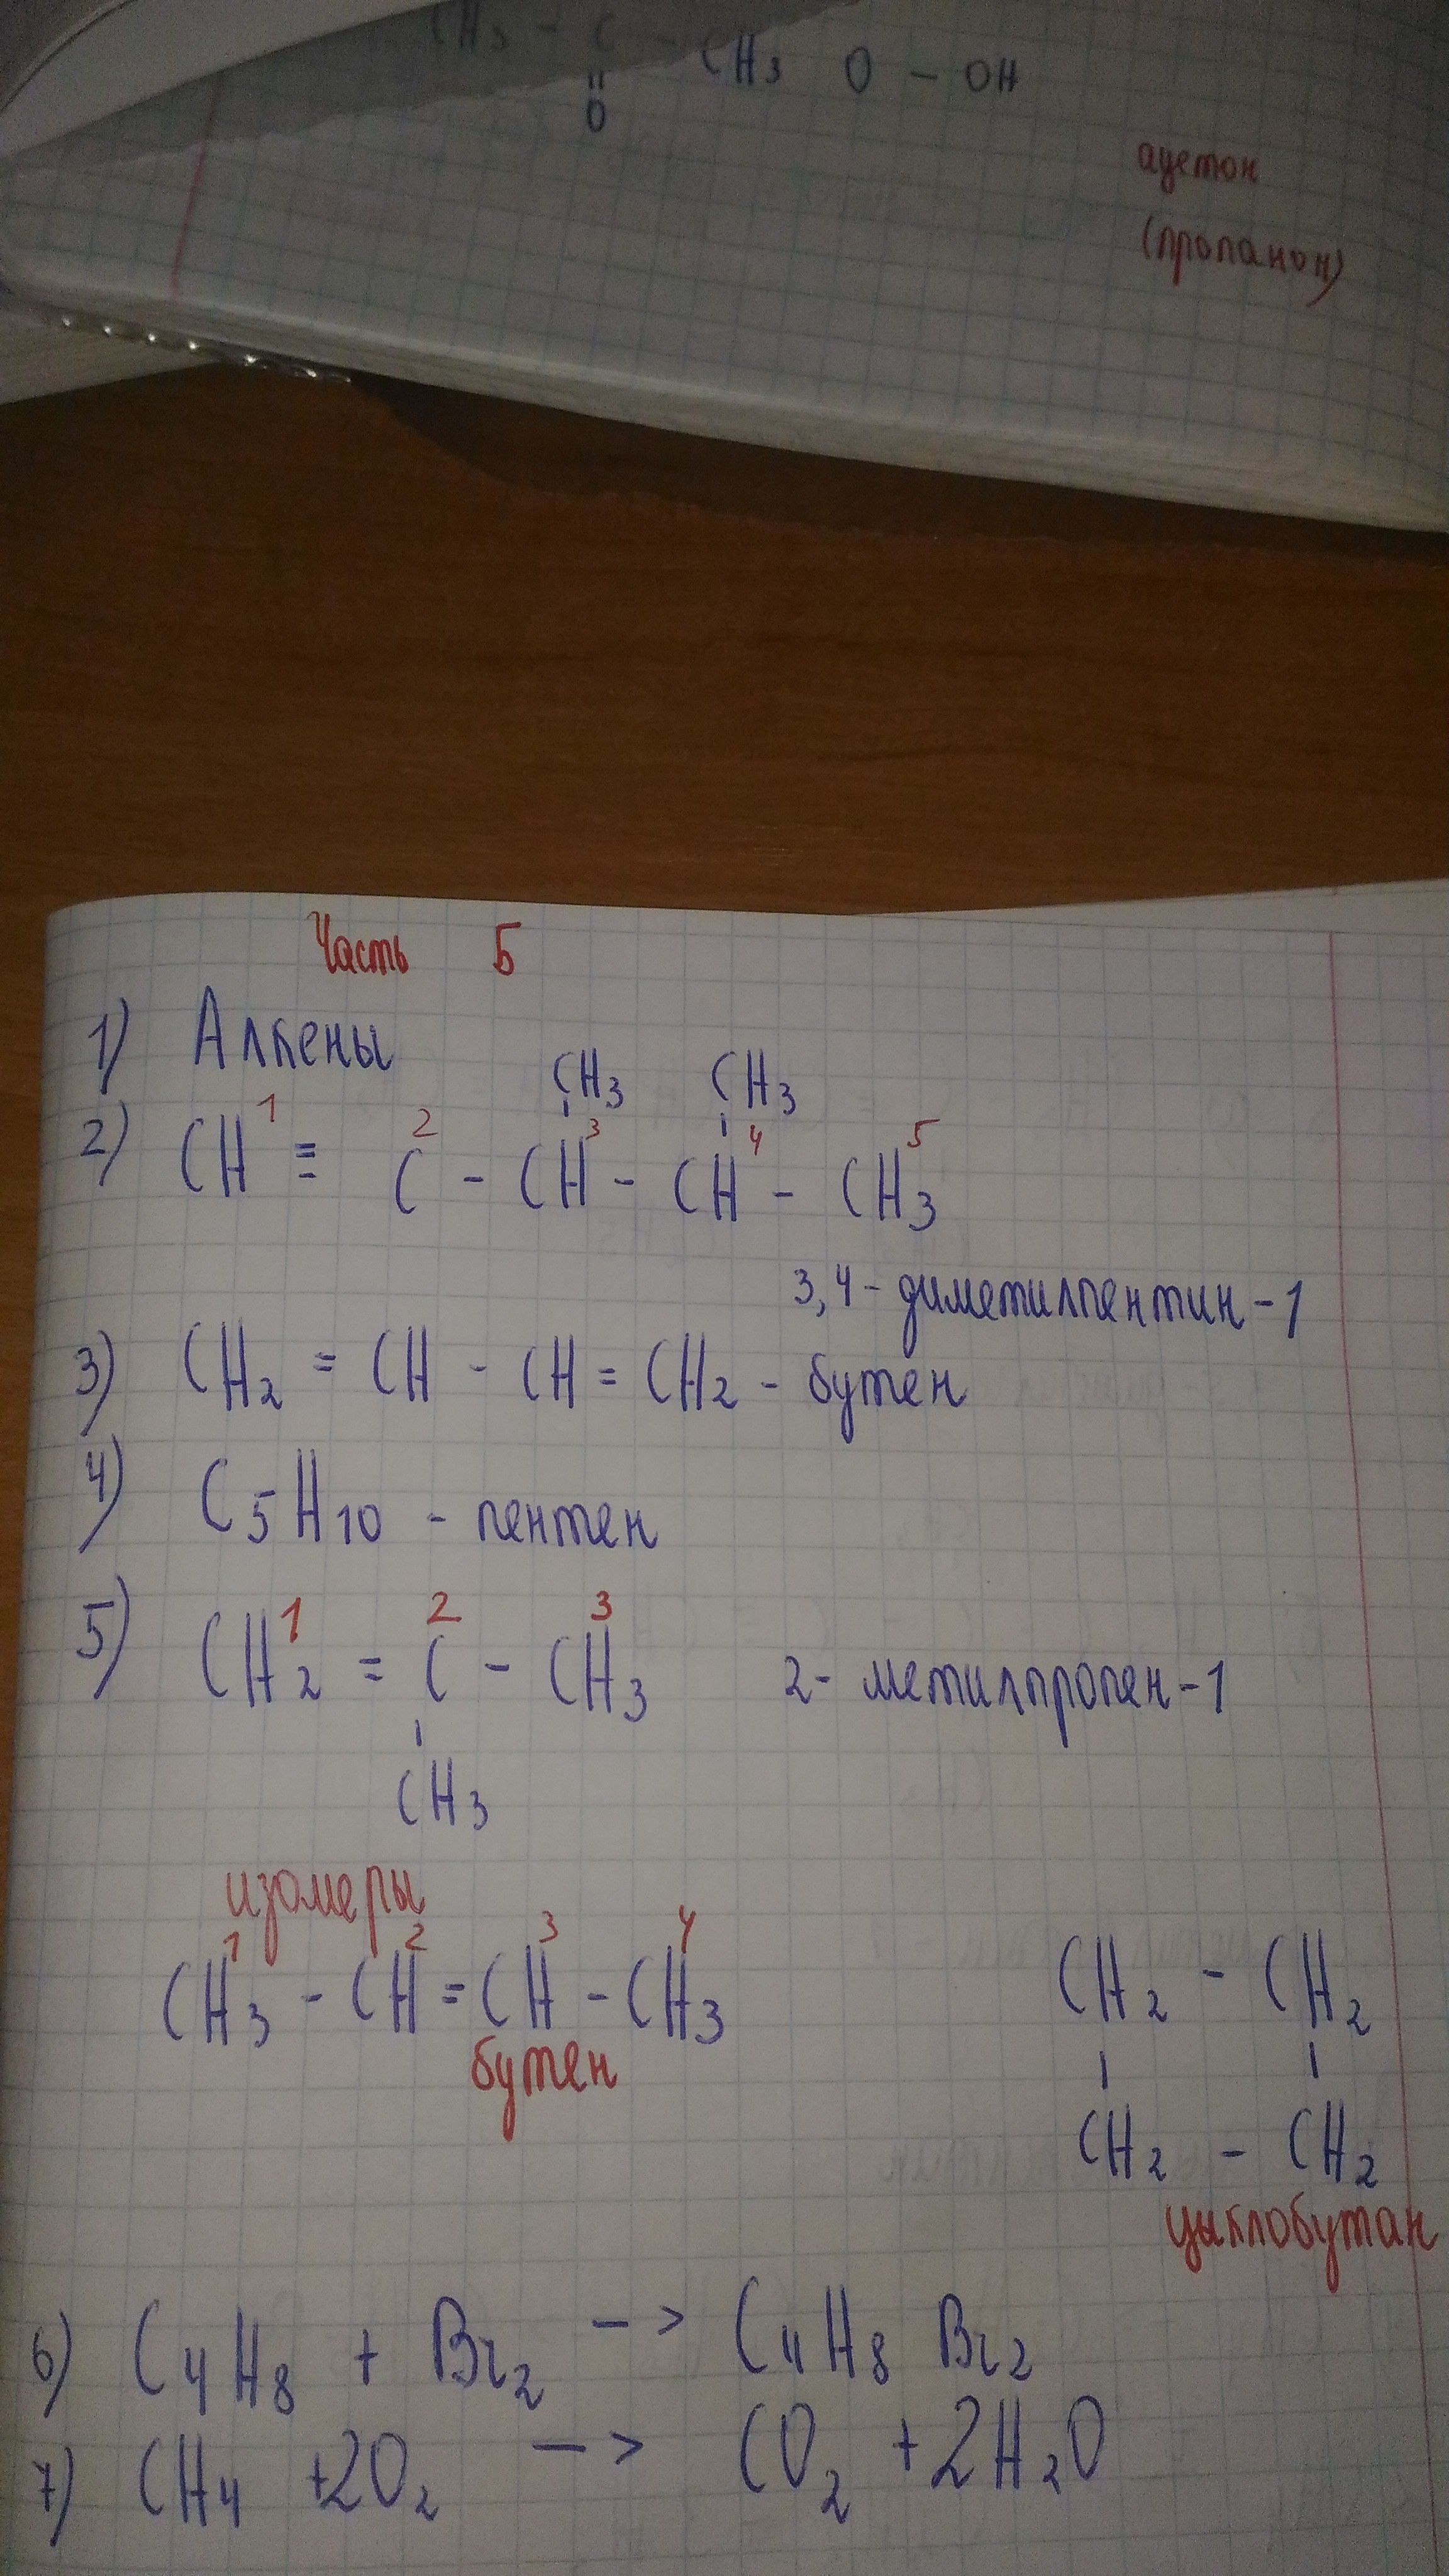 CH3 - C - CH3 O - OH
||
O
ацетон
(пропанон)
Часть Б
1) Алкены
CH3 CH3
1 2 3 4 5
2) CH ≡ C - CH - CH - CH3
3,4 - диметилпентин - 1
3) CH2 = CH - CH = CH2 - бутен
4) C5H10 - пентен
1 2 3
5) CH2 = C - CH3 2 - метилпропен - 1
CH3
изомеры
1 2 3 4
CH3 - CH = CH - CH3
бутен
CH2 - CH2
CH2 - CH2
цыклобутан
6) C4H8 + Br2 -> C4H8 Br2
7) CH4 + 2O2 -> CO2 + 2H2O